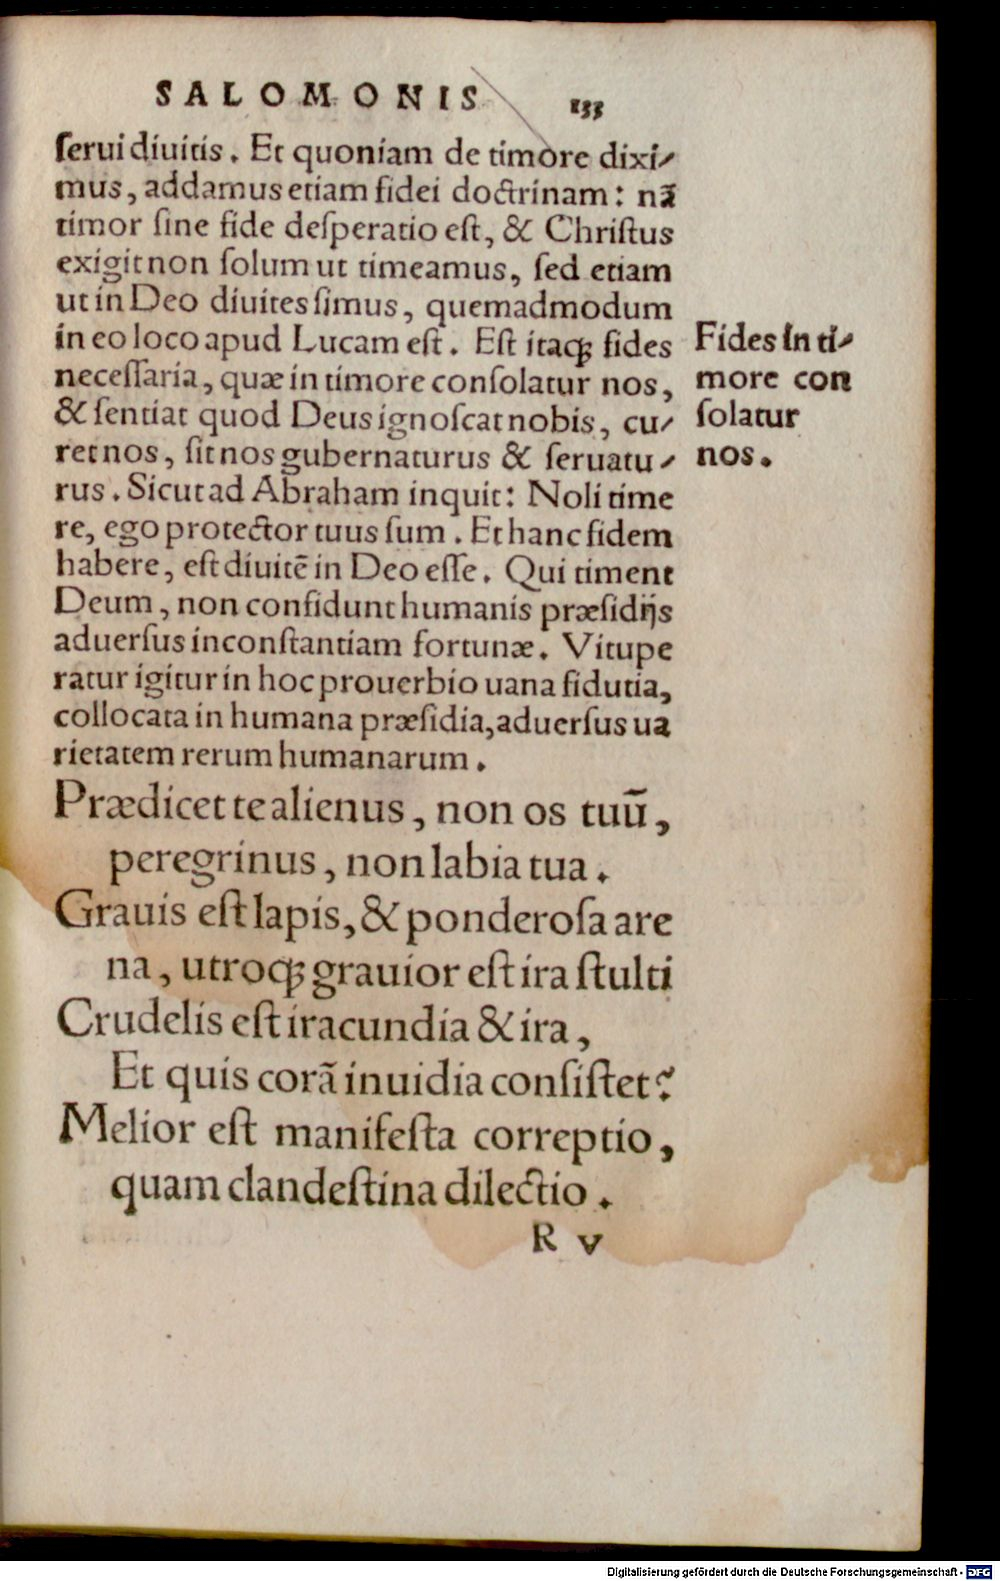 SALOMONIS 133
ſerui diuitis. Et quoniam de timore dixi-
mus, addamus etiam fidei doctrinam: nã
timor ſine fide deſperatio eſt, & Chriſtus
exigit non ſolum ut timeamus, ſed etiam
ut in Deo diuites ſimus, quemadmodum
in eo loco apud Lucam eſt. Eſt itaqꝫ fides
neceſſaria, quæ in timore conſolatur nos,
& ſentiat quod Deus ignoſcat nobis, cu-
ret nos, ſit nos gubernaturus & ſeruatu-
rus. Sicut ad Abraham inquit: Noli time
re, ego protector tuus ſum. Et hanc fidem
habere, eſt diuitẽ in Deo eſſe. Qui timent
Deum, non confidunt humanis præſidijs
aduerſus inconſtantiam fortunæ. Vitupe
ratur igitur in hoc prouerbio uana fidutia,
collocata in humana præſidia, aduerſus ua
rietatem rerum humanarum.
Fides in ti-
more con
ſolatur
nos.
Prædicet te alienus, non os tuũ,
peregrinus, non labia tua.
Grauis eſt lapis, & ponderoſa are
na, utroqꝫ grauior eſt ira ſtulti
Crudelis eſt iracundia & ira,
Et quis corã inuidia conſiſtet?
Melior eſt manifeſta correptio,
quam clandeſtina dilectio.
R v
Digitalisierung gefördert durch die Deutsche Forschungsgemeinschaft - DFG